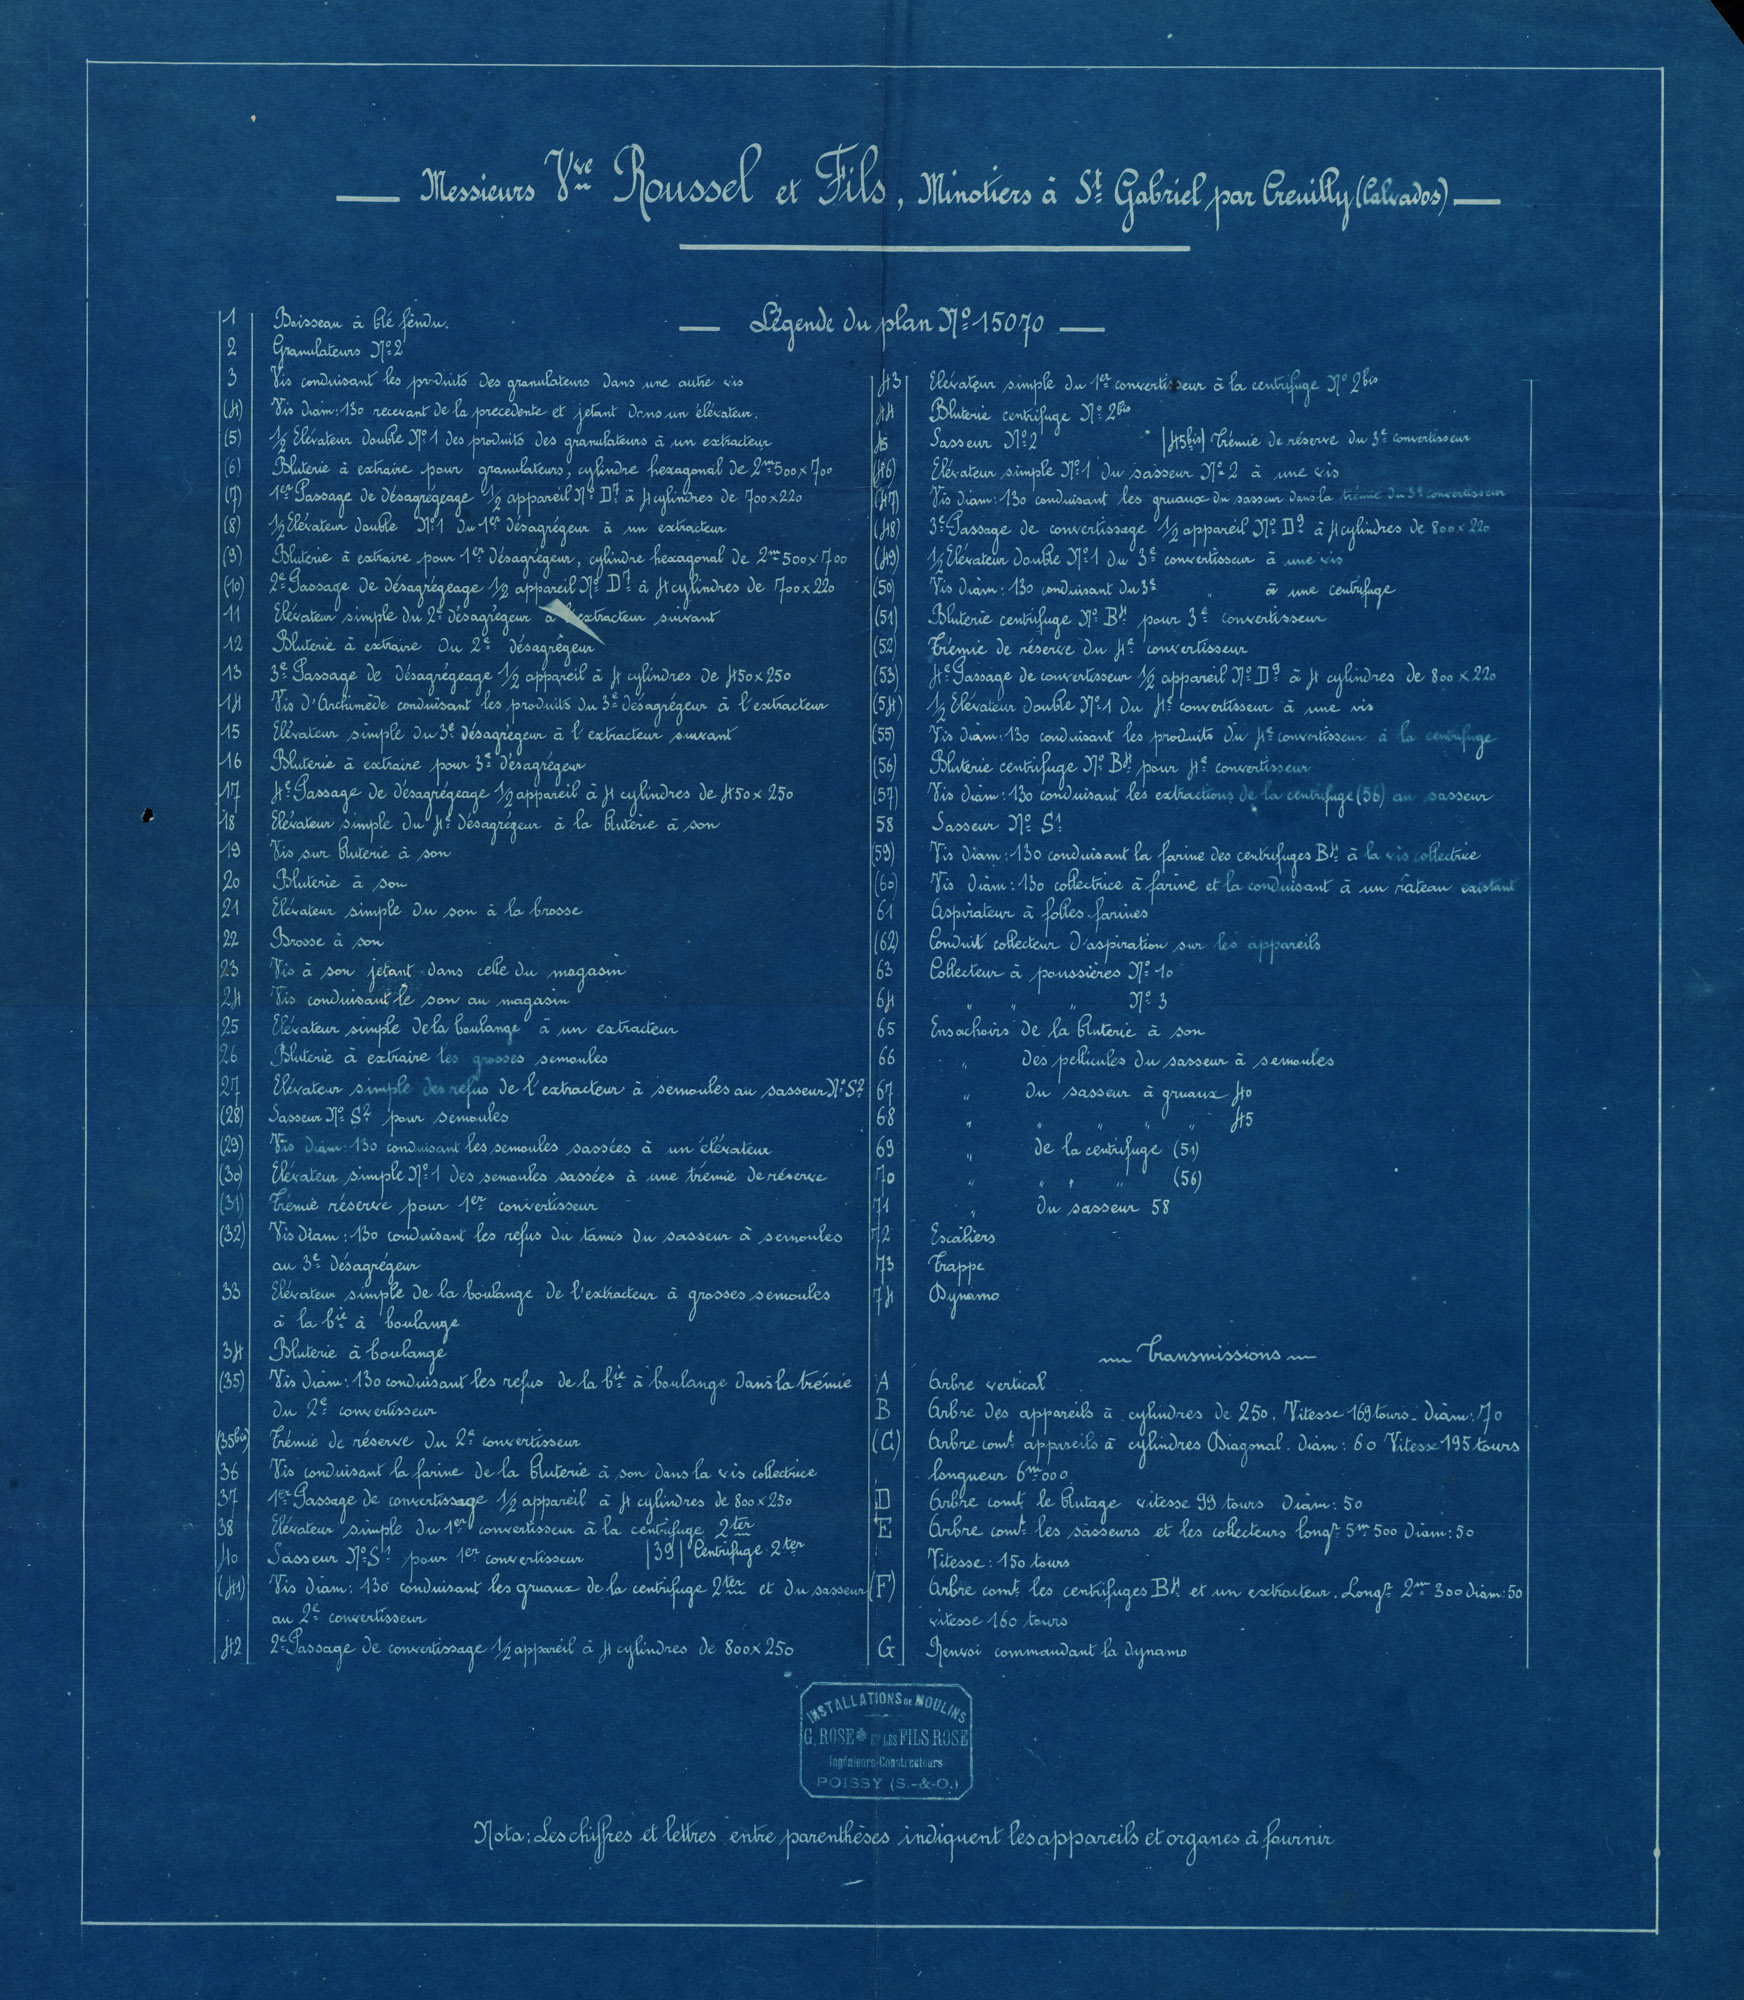 — Messieurs Vve Roussel et Fils, Minotiers à St Gabriel par Creuilly (Calvados) —
— Légende du plan No 15070 —
1 Boisseau à blé fendu.
2 Granulateurs No 2
3 Vis conduisant les produits des granulateurs dans une autre vis
(4) Vis diam: 130 recevant de la précédente et jetant dans un élévateur.
(5) 1/2 Elévateur double No 1 des produits des granulateurs à un extracteur
(6) Bluterie à extraire pour granulateurs, cylindre hexagonal de 2m500 x 700
(7) 1er Passage de désagrégeage 1/2 appareil No D7 à 4 cylindres de 700 x 220
(8) 1/2 Elévateur double No 1 du 1er désagrégeur à un extracteur
(9) Bluterie à extraire pour 1er désagrégeur, cylindre hexagonal de 2m500 x 700
(10) 2e Passage de désagrégeage 1/2 appareil No D7 à 4 cylindres de 700 x 220
11 Elévateur simple du 2e désagrégeur à l'extracteur suivant
12 Bluterie à extraire du 2e désagrégeur
13 3e Passage de désagrégeage 1/2 appareil à 4 cylindres de 450 x 250
14 Vis d'Archimède conduisant les produits du 3e désagrégeur à l'extracteur
15 Elévateur simple du 3e désagrégeur à l'extracteur suivant
16 Bluterie à extraire pour 3e désagrégeur
17 4e Passage de désagrégeage 1/2 appareil à 4 cylindres de 450 x 250
18 Elévateur simple du 4e désagrégeur à la bluterie à son
19 Vis sur bluterie à son
20 Bluterie à son
21 Elévateur simple du son à la brosse
22 Brosse à son
23 Vis à son jetant dans celle du magasin
24 Vis conduisant le son au magasin
25 Elévateur simple de la boulange à un extracteur
26 Bluterie à extraire les grosses semoules
27 Elévateur simple des refus de l'extracteur à semoules au sasseur No S2
(28) Sasseur No S2 pour semoules
(29) Vis diam: 130 conduisant les semoules sassées à un élévateur
(30) Elévateur simple No 1 des semoules sassées à une trémie de réserve
(31) Trémie réserve pour 1er convertisseur
(32) Vis diam: 130 conduisant les refus du tamis du sasseur à semoules
au 3e désagrégeur
33 Elévateur simple de la boulange de l'extracteur à grosses semoules
à la bie à boulange
34 Bluterie à boulange
(35) Vis diam: 130 conduisant les refus de la bie à boulange dans la trémie
du 2e convertisseur
(35bis) Trémie de réserve du 2e convertisseur
36 Vis conduisant la farine de la bluterie à son dans la vis collectrice
37 1er Passage de convertissage 1/2 appareil à 4 cylindres de 800 x 250
38 Elévateur simple du 1er convertisseur à la centrifuge 2ter
40 Sasseur No S1 pour 1er convertisseur |39| Centrifuge 2ter
(41) Vis diam: 130 conduisant les gruaux de la centrifuge 2ter et du sasseur
au 2e convertisseur
42 2e Passage de convertissage 1/2 appareil à 4 cylindres de 800 x 250
43 Elévateur simple du 1er convertisseur à la centrifuge No 2bis
44 Bluterie centrifuge No 2bis
45 Sasseur No 2 |45bis| Trémie de réserve du 3e convertisseur
(46) Elévateur simple No 1 du sasseur No 2 à une vis
(47) Vis diam: 130 conduisant les gruaux du sasseur dans la trémie du 3e convertisseur
(48) 3e Passage de convertissage 1/2 appareil No D9 à 4 cylindres de 800 x 220
(49) 1/2 Elévateur double No 1 du 3e convertisseur à une vis
(50) Vis diam: 130 conduisant du 3e " à une centrifuge
(51) Bluterie centrifuge No B4 pour 3e convertisseur
(52) Trémie de réserve du 4e convertisseur
(53) 4e Passage de convertisseur 1/2 appareil No D9 à 4 cylindres de 800 x 220
(54) 1/2 Elévateur double No 1 du 4e convertisseur à une vis
(55) Vis diam: 130 conduisant les produits du 4e convertisseur à la centrifuge
(56) Bluterie centrifuge No B4 pour 4e convertisseur
(57) Vis diam: 130 conduisant les extractions de la centrifuge (56) au sasseur
58 Sasseur No S1
(59) Vis diam: 130 conduisant la farine des centrifuges B4 à la vis collectrice
(60) Vis diam: 130 collectrice à farine et la conduisant à un rateau existant
61 Aspirateur à folles farines
(62) Conduit collecteur d'aspiration sur les appareils
63 Collecteur à poussières No 10
64 " " " No 3
65 Ensachoirs de la bluterie à son
66 " des pellicules du sasseur à semoules
67 " du sasseur à gruaux 40
68 " " " " 45
69 " de la centrifuge (51)
70 " " " " (56)
71 " du sasseur 58
72 Escaliers
73 Trappe
74 Dynamo
— Transmissions —
A Arbre vertical
B Arbre des appareils à cylindres de 250. Vitesse 169 tours. diam: 70
(C) Arbre comt appareils à cylindres Diagonal. diam: 60 Vitesse 195 tours
longueur 6m000
D Arbre comt le blutage vitesse 99 tours diam: 50
E Arbre comt les sasseurs et les collecteurs longr 5m500 diam: 50
Vitesse: 150 tours
(F) Arbre comt les centrifuges B4 et un extracteur. Longr 2m300 diam: 50
vitesse 160 tours
G Renvoi commandant la dynamo
INSTALLATIONS DE MOULINS
G. ROSE ET LES FILS ROSE
Ingénieurs-Constructeurs
POISSY (S.-&-O.)
Nota: Les chiffres et lettres entre parenthèses indiquent les appareils et organes à fournir